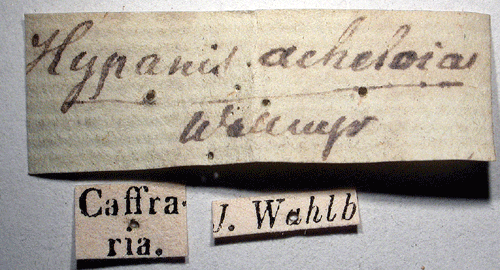 Hypanis acheloia
Wallengr
Caffra-
ria.
J. Wahlb